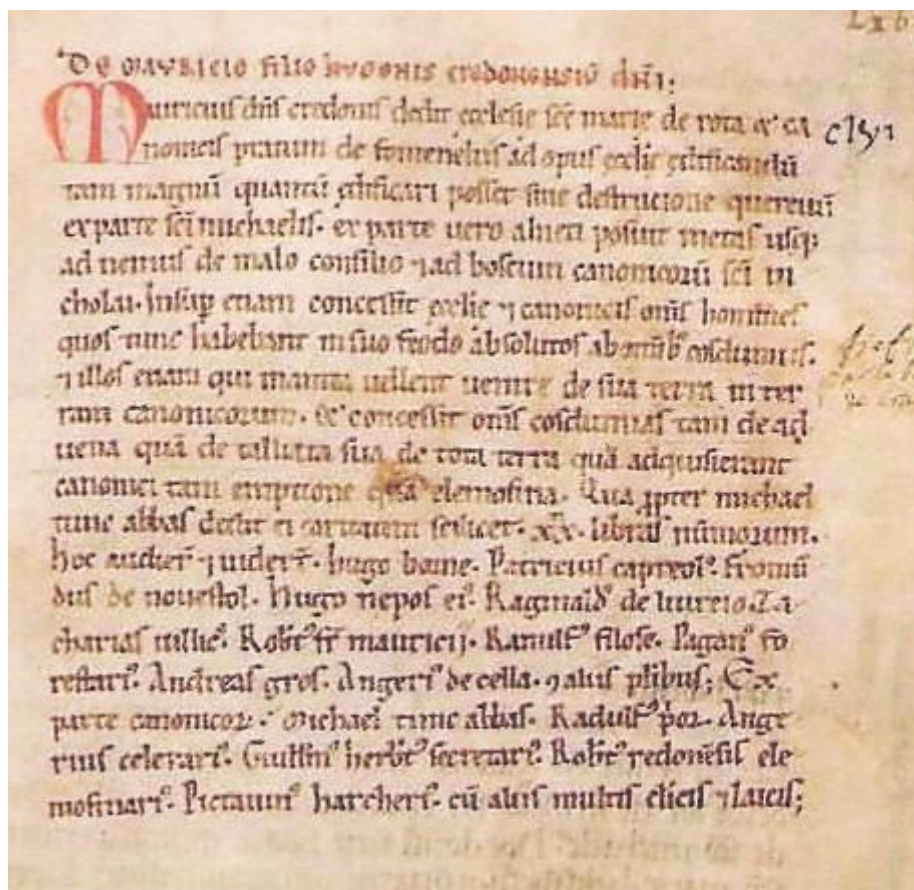 De Mauricio filio hugonis credonensiū dn̄i.
Mauricius dn̄s credonis dedit ecclesie sc̄e marie de rota & ca
nonicis pratum de fontenellis ad opus ecclie edificandū
tam magnū quantū edificari posset sine destructione quercuū
ex parte sc̄i michaelis. ex parte uero alneti posuit metas usqꝫ
ad nemus de malo consilio ⁊ ad boscum canonicorū sc̄i ni
cholai. Insup̄ etiam concessit ecclie ⁊ canonicis om̄s homines
quos tunc habebant in suo feodo absolutos ab omib᷒ cosdumis.
⁊ illos etiam qui manita uellent uenire de sua terra in ter
ram canonicorum. & concessit om̄s cosdumas tam de ad
uena quā de tallata sua de tota terra quā adquisierunt
canonici tam emptione quā elemosina. Qua ꝓpter michael
tunc abbas dedit ei scilicet .xx. libras nūmorum.
hoc audier̄ ⁊ uider̄. hugo boine. Patricius capreol᷒. Fromū
dus de Hugo nepos ei᷒. Raginald᷒ de Za
charias uillic᷒. Rob̄t᷒ fr̄ mauricij. Ranulf᷒ filose. Pagan᷒ fo
restari᷒. Andreas gros. Angeri᷒ de cella. ⁊ aliis plibus; Ex
parte canonicoꝝ. Michael tunc abbas. Radulf᷒ p̄or. Ange
rius celerari᷒. Guillm̄᷒ herb̄t᷒ secretari᷒. Rob̄t᷒ redonēsis ele
mosinari᷒. Pictauin᷒ harcheri᷒. cū aliis multis clicis ⁊ laicis;